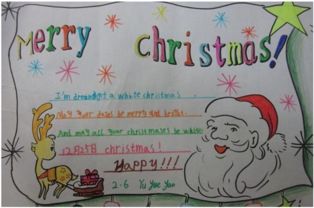 Merry Christmas!
I'm dreaming of a white christmas
May your days be merry and bright
And may all your christmases be white
12月25日 christmas!
Happy!!!
2-6 Yu Yue Yue